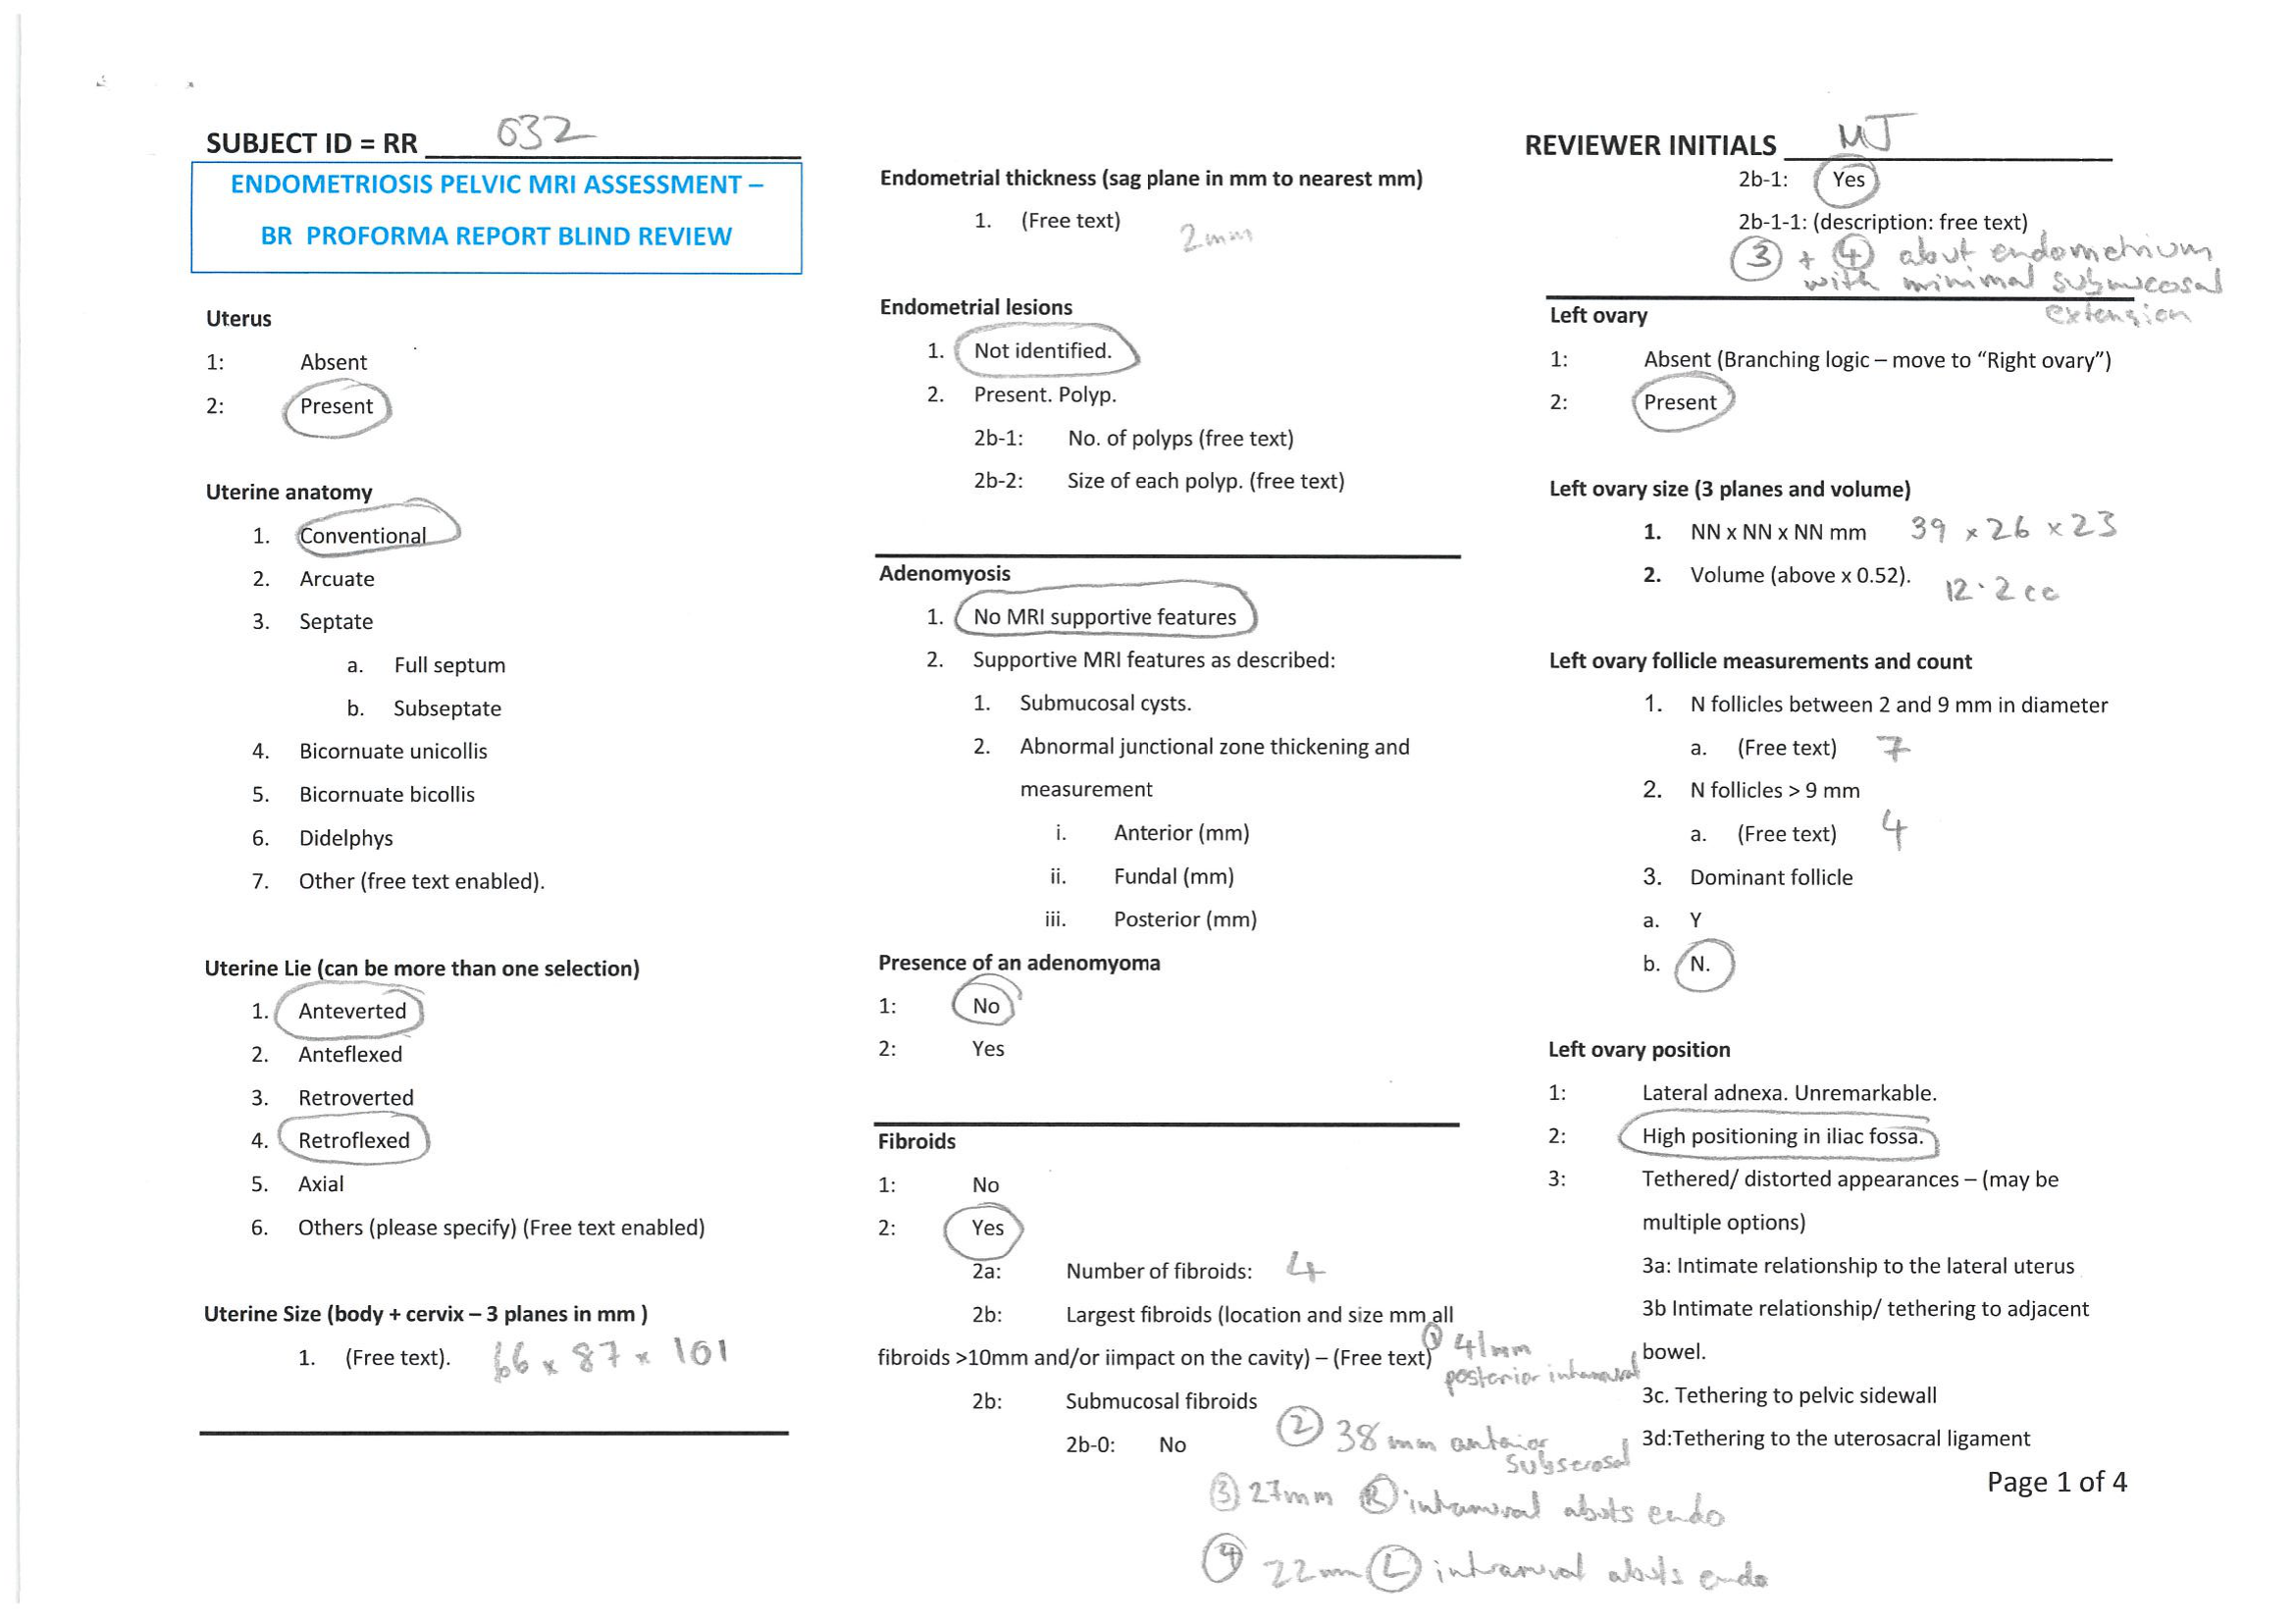 SUBJECT ID = RR 632
ENDOMETRIOSIS PELVIC MRI ASSESSMENT –
BR PROFORMA REPORT BLIND REVIEW
Uterus
1: Absent
2: Present
Uterine anatomy
1. Conventional
2. Arcuate
3. Septate
a. Full septum
b. Subseptate
4. Bicornuate unicollis
5. Bicornuate bicollis
6. Didelphys
7. Other (free text enabled).
Uterine Lie (can be more than one selection)
1. Anteverted
2. Anteflexed
3. Retroverted
4. Retroflexed
5. Axial
6. Others (please specify) (Free text enabled)
Uterine Size (body + cervix – 3 planes in mm )
1. (Free text). 66 x 87 x 101
Endometrial thickness (sag plane in mm to nearest mm)
1. (Free text) 2mm
Endometrial lesions
1. Not identified.
2. Present. Polyp.
2b-1: No. of polyps (free text)
2b-2: Size of each polyp. (free text)
Adenomyosis
1. No MRI supportive features
2. Supportive MRI features as described:
1. Submucosal cysts.
2. Abnormal junctional zone thickening and
measurement
i. Anterior (mm)
ii. Fundal (mm)
iii. Posterior (mm)
Presence of an adenomyoma
1: No
2: Yes
Fibroids
1: No
2: Yes
2a: Number of fibroids: 4
2b: Largest fibroids (location and size mm all
fibroids >10mm and/or iimpact on the cavity) – (Free text) ① 41mm
posterior intramural
2b: Submucosal fibroids
2b-0: No ② 38mm anterior
subserosal
③ 27mm Ⓡ intramural abuts endo
④ 22mm Ⓛ intramural abuts endo
REVIEWER INITIALS MJ
2b-1: Yes
2b-1-1: (description: free text)
③ + ④ abut endometrium
with minimal submucosal
extension
Left ovary
1: Absent (Branching logic – move to “Right ovary”)
2: Present
Left ovary size (3 planes and volume)
1. NN x NN x NN mm 39 x 26 x 23
2. Volume (above x 0.52). 12.2 cc
Left ovary follicle measurements and count
1. N follicles between 2 and 9 mm in diameter
a. (Free text) 7
2. N follicles > 9 mm
a. (Free text) 4
3. Dominant follicle
a. Y
b. N.
Left ovary position
1: Lateral adnexa. Unremarkable.
2: High positioning in iliac fossa.
3: Tethered/ distorted appearances – (may be
multiple options)
3a: Intimate relationship to the lateral uterus
3b Intimate relationship/ tethering to adjacent
bowel.
3c. Tethering to pelvic sidewall
3d:Tethering to the uterosacral ligament
Page 1 of 4